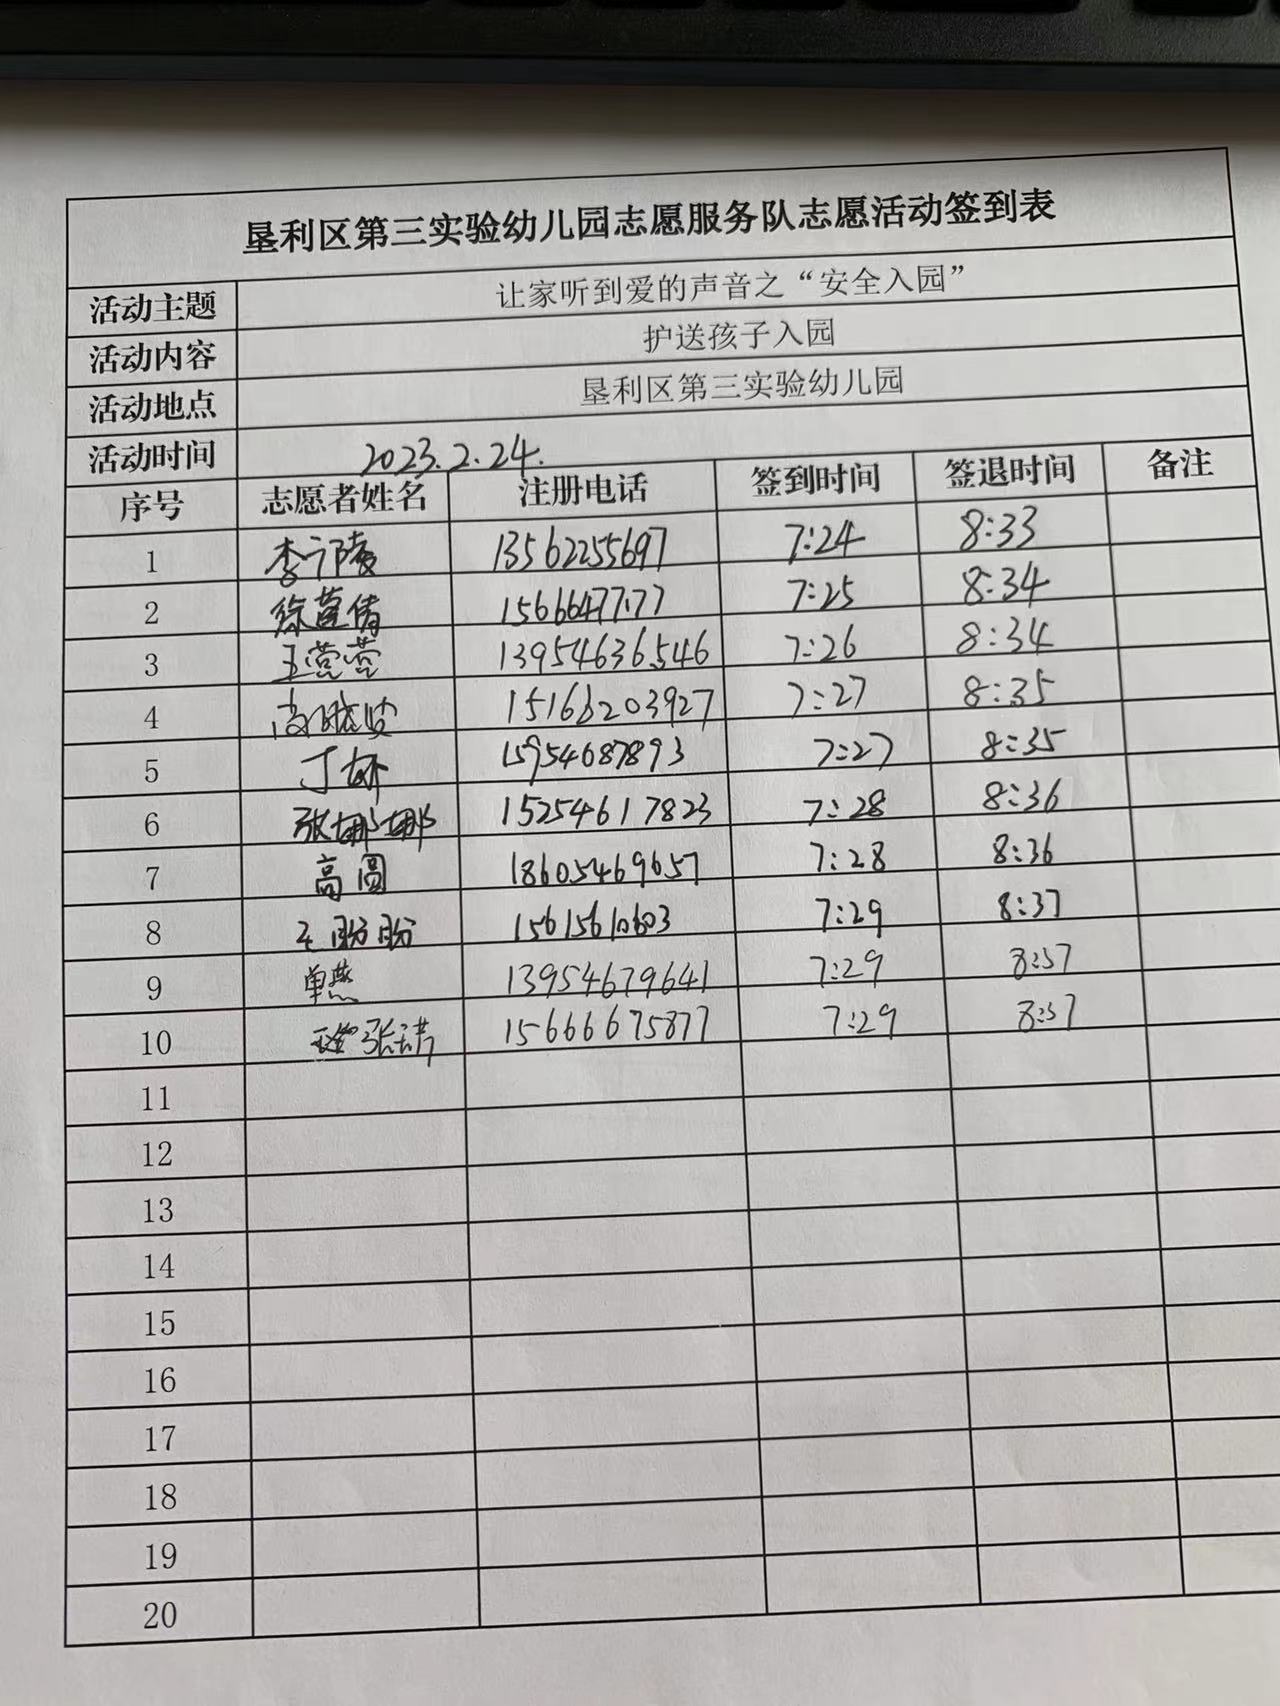 垦利区第三实验幼儿园志愿服务队志愿活动签到表
活动主题 让家听到爱的声音之“安全入园”
活动内容 护送孩子入园
活动地点 垦利区第三实验幼儿园
活动时间 2023.2.24.
序号 志愿者姓名 注册电话 签到时间 签退时间 备注
1 13562255697 7:24 8:33
2 徐萱倩 7:25 8:34
3 王莹莹 13954636546 7:26 8:34
4 15166203927 7:27 8:35
5 15954687893 7:27 8:35
6 张娜娜 15254617823 7:28 8:36
7 高圆 18605469657 7:28 8:36
8 王盼盼 15615610603 7:29 8:37
9 单燕 13954679641 7:29 8:37
10 15666675877 7:29 8:37
11
12
13
14
15
16
17
18
19
20